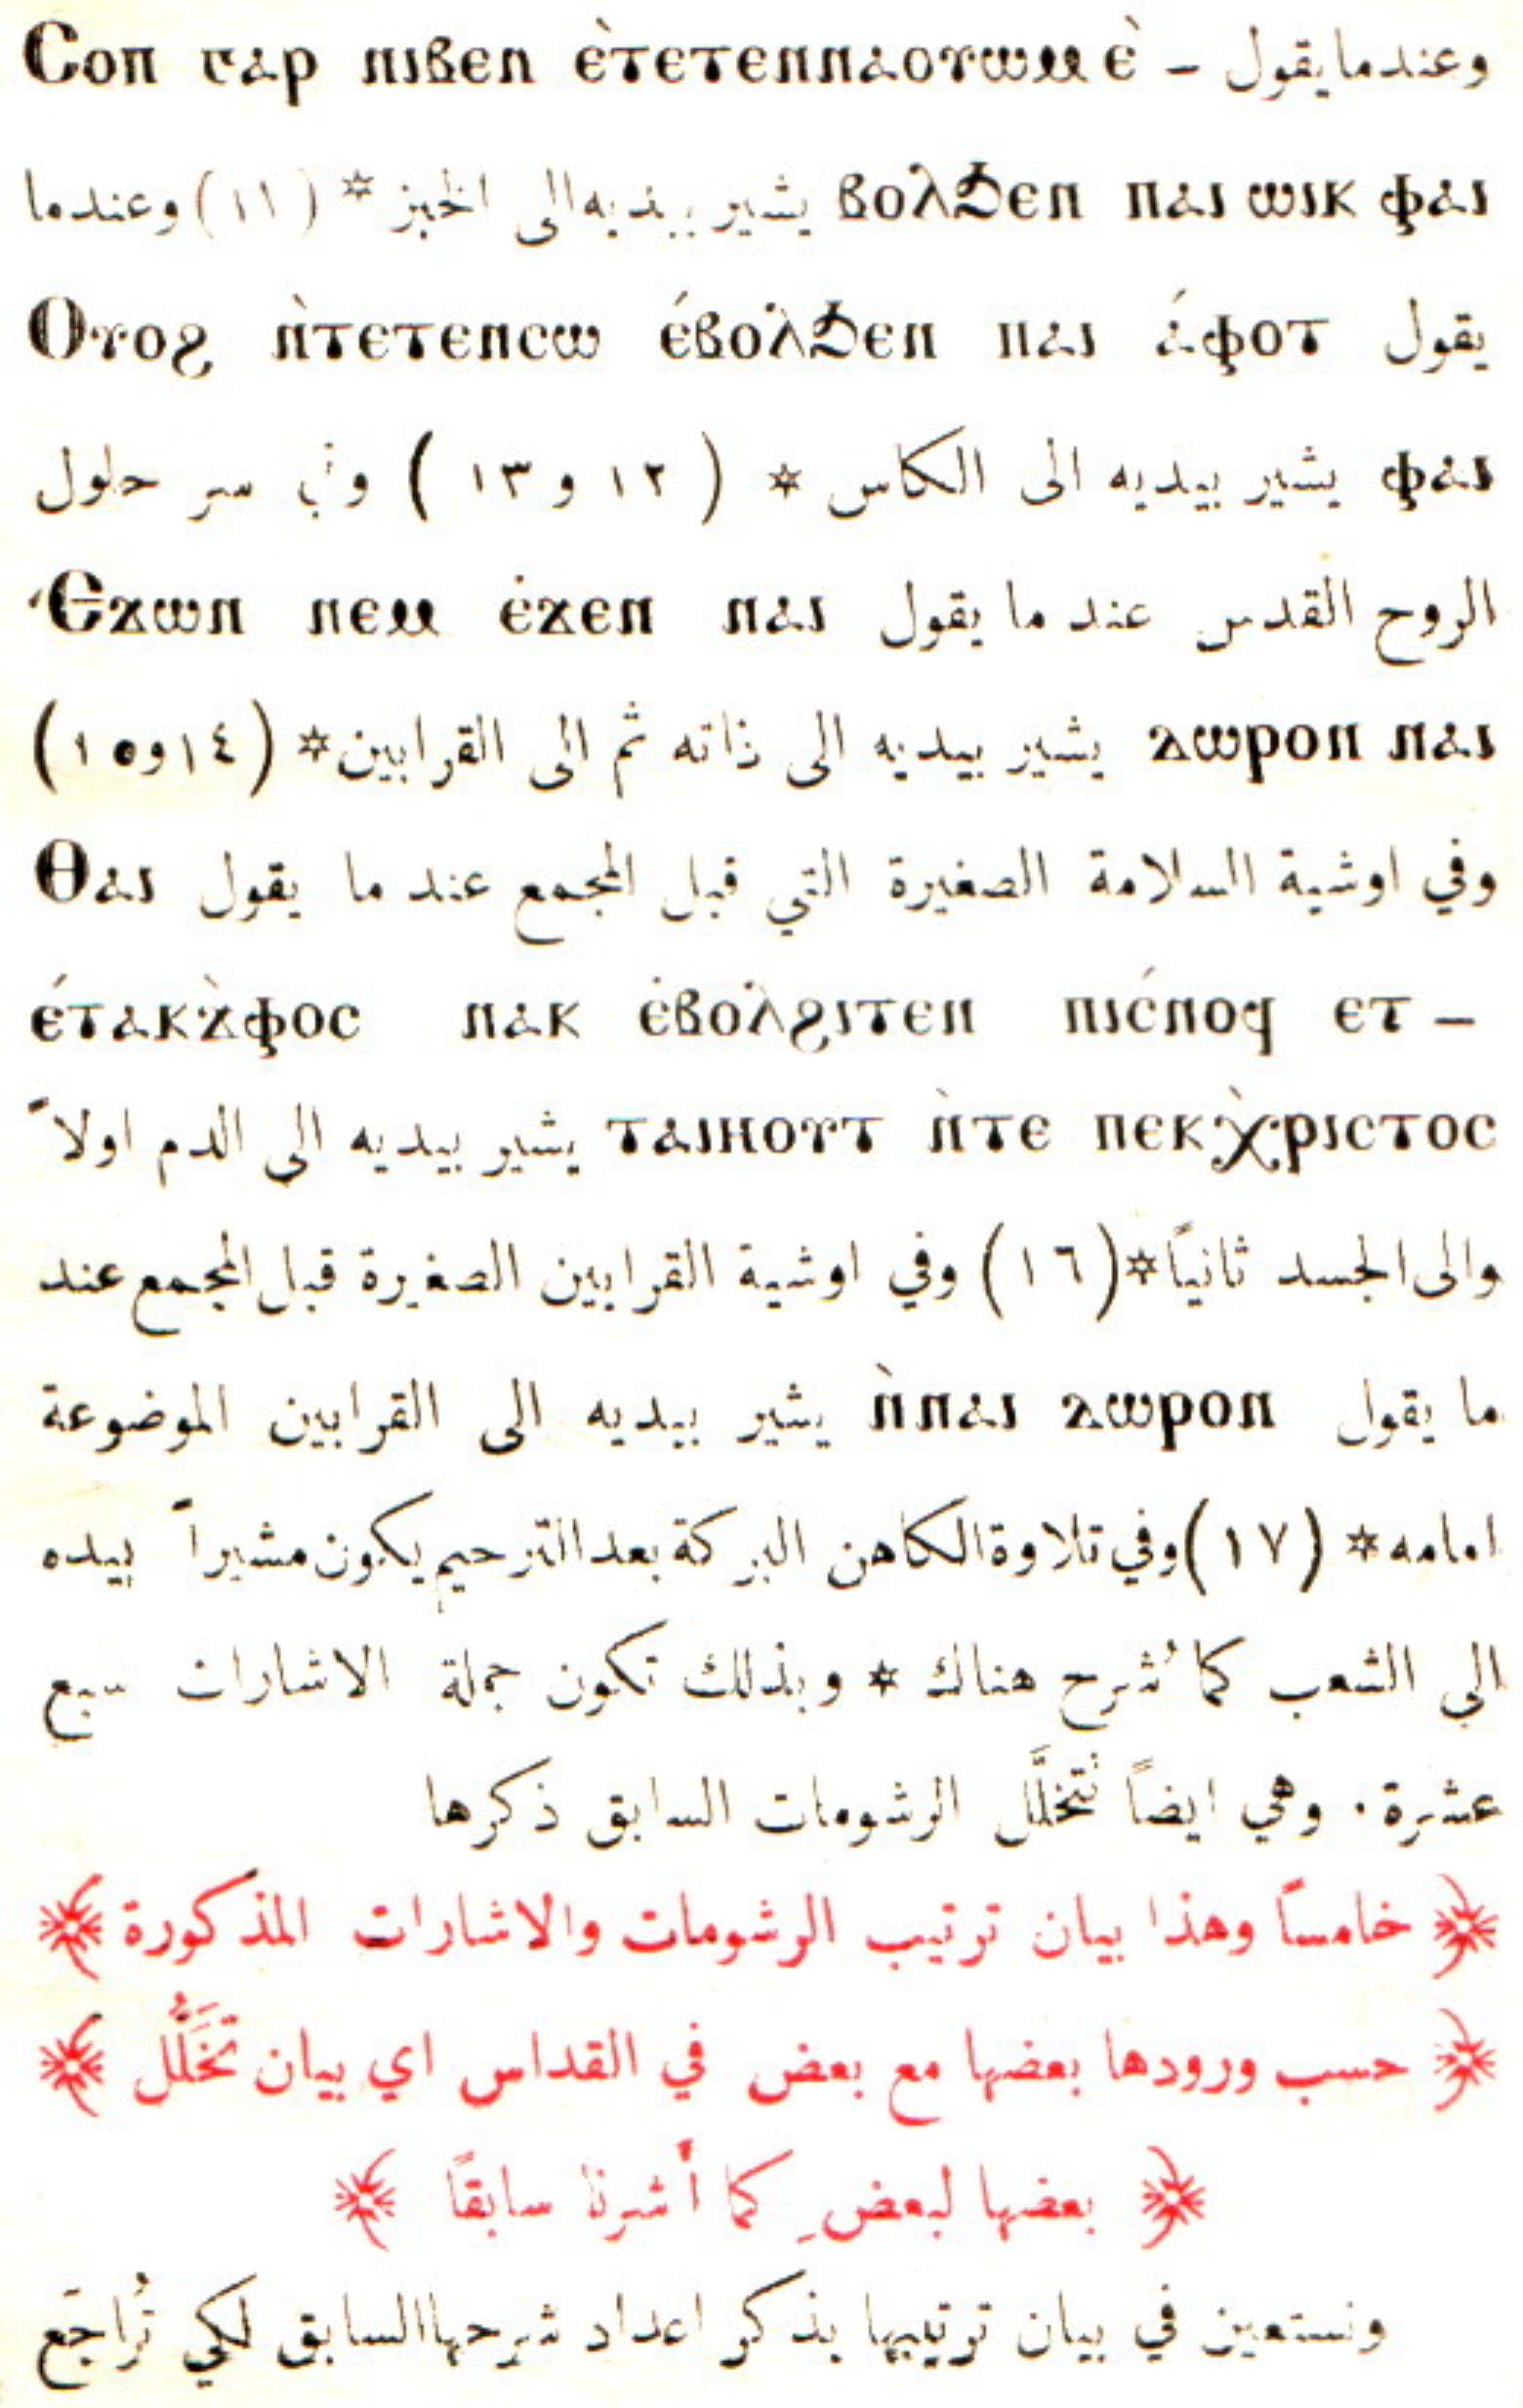 وعندما يقول – Ⲥⲟⲡ ⲅⲁⲣ ⲛⲓⲃⲉⲛ ⲉ̀ⲧⲉⲧⲉⲛⲛⲁⲟⲩⲱⲙ ⲉ̀
ⲃⲟⲗϧⲉⲛ ⲡⲁⲓ ⲱⲓⲕ ⲫⲁⲓ يشير بيديه الى الخبز * (١١) وعندما
يقول Ⲟⲩⲟϩ ⲛ̀ⲧⲉⲧⲉⲛⲥⲱ ⲉ́ⲃⲟⲗ̀ϧⲉⲛ ⲡⲁⲓ ⲁ́ⲫⲟⲧ
ⲫⲁⲓ يشير بيديه الى الكاس * (١٢ و ١٣) وفي سر حلول
الروح القدس عند ما يقول Ⲉ̀ϫⲱⲛ ⲛⲉⲙ ⲉ̀ϫⲉⲛ ⲛⲁⲓ
ⲇⲱⲣⲟⲛ ⲛⲁⲓ يشير بيديه الى ذاته ثم الى القرابين * (١٤ و ١٥)
وفي اوشية السلامة الصغيرة التي قبل المجمع عند ما يقول Ⲑⲁⲓ
ⲉ́ⲧⲁⲕϫ̀ⲫⲟⲥ ⲛⲁⲕ ⲉ̀ⲃⲟⲗ̀ϩⲓⲧⲉⲛ ⲡⲓⲥ́ⲛⲟϥ ⲉⲧ –
ⲧⲁⲓⲏⲟⲩⲧ ⲛ̀ⲧⲉ ⲡⲉⲕⲭ̀ⲣⲓⲥⲧⲟⲥ يشير بيديه الى الدم اولاً
والى الجسد ثانياً * (١٦) وفي اوشية القرابين الصغيرة قبل المجمع عند
ما يقول ⲛ̀ⲛⲁⲓ ⲇⲱⲣⲟⲛ يشير بيديه الى القرابين الموضوعة
امامه * (١٧) وفي تلاوة الكاهن البركة بعد الترحيم يكون مشيراً بيده
الى الشعب كما شُرح هناك * وبذلك تكون جملة الاشارات سبع
عشرة . وهي ايضاً تتخلَّل الرشومات السابق ذكرها
﴿ خامساً وهذا بيان ترتيب الرشومات والاشارات المذكورة ﴾
﴿ حسب ورودها بعضها مع بعض في القداس اي بيان تخَلُّل ﴾
﴿ بعضها لبعضٍ كما أشرنا سابقاً ﴾
ونستعين في بيان ترتيبها بذكر اعداد شرحها السابق لكي تُراجَع